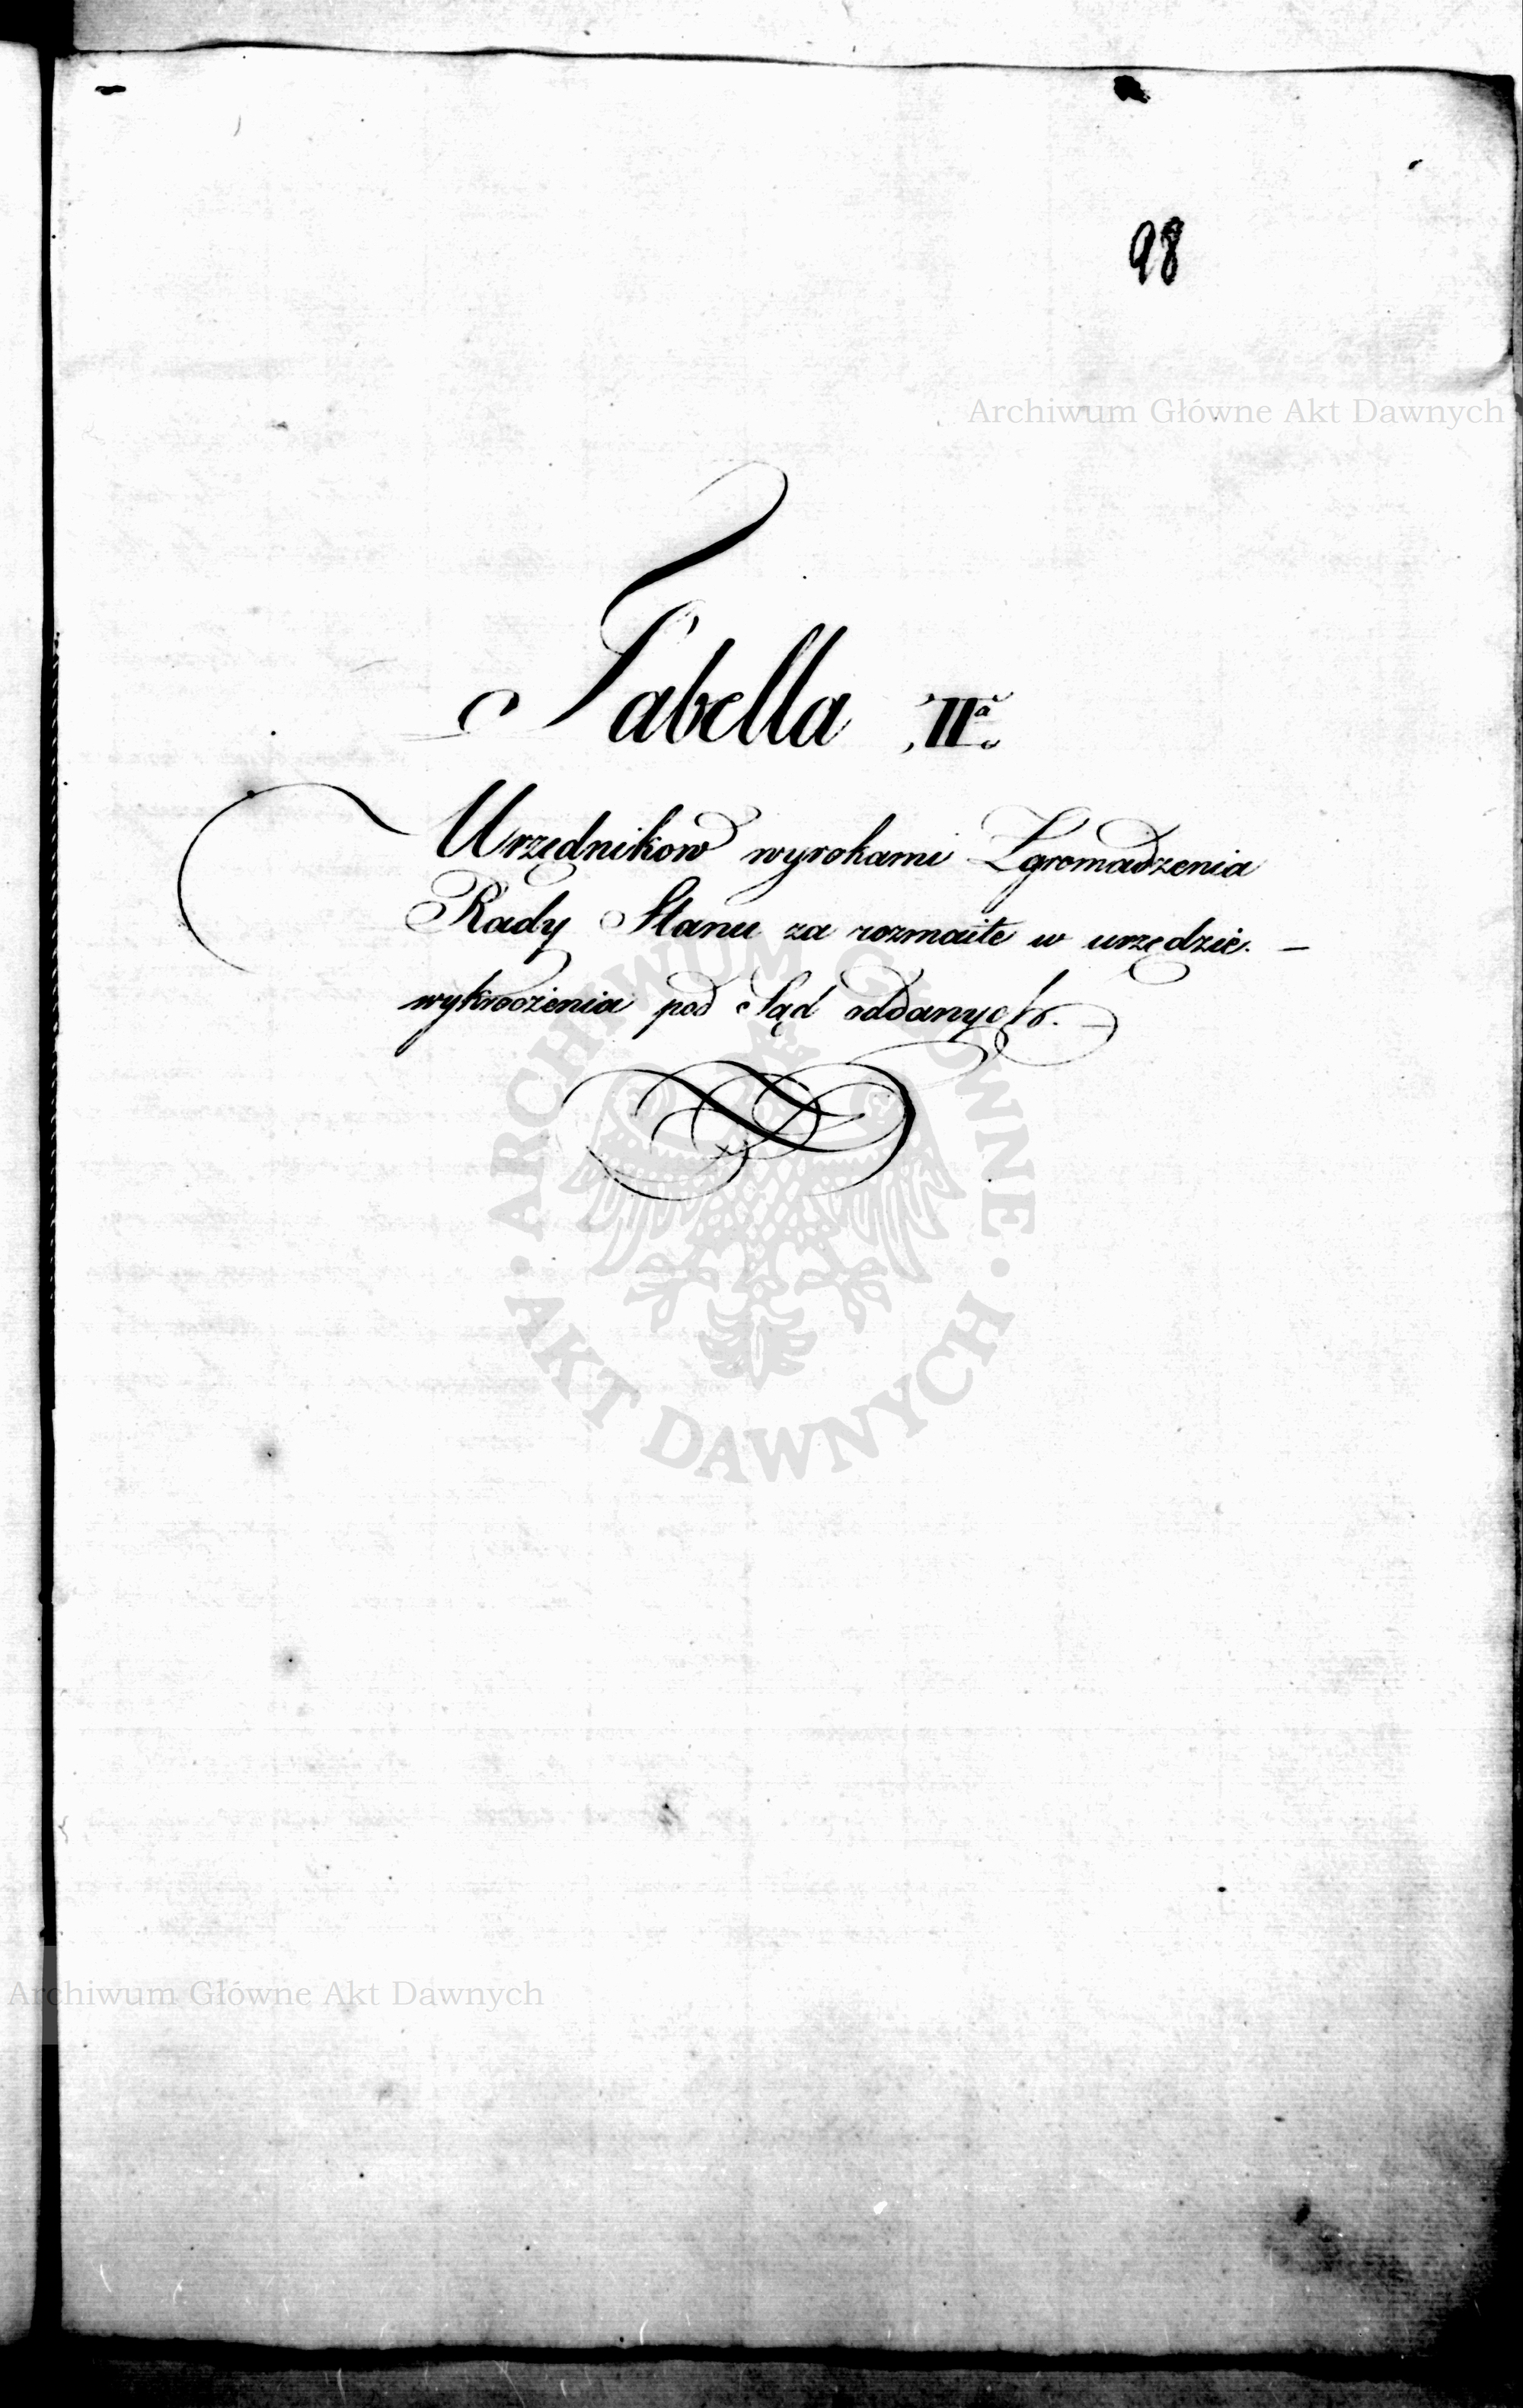 98
Archiwum Główne Akt Dawnych
Tabella IIa
Urzędnikow wyrokami Zgromadzenia
Rady Stanu za rozmaite w urzędzie. —
wykroczenia pod Sąd oddanych. —
ARCHIWUM GŁÓWNE · AKT DAWNYCH ·
Archiwum Główne Akt Dawnych